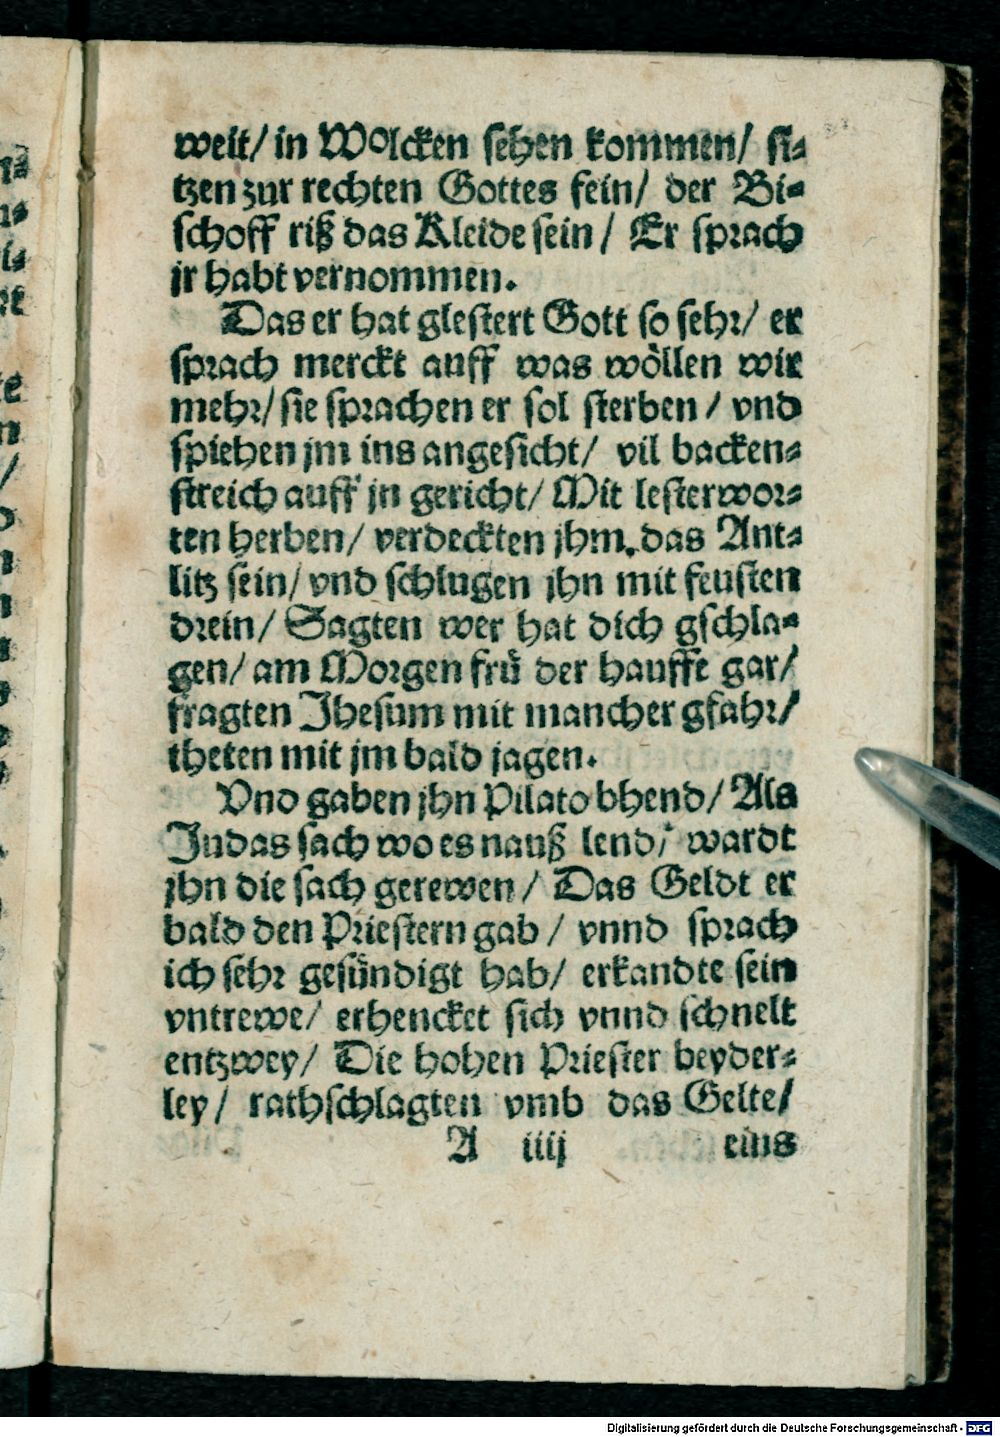 weit/ in Wolcken sehen kommen/ si-
tzen zur rechten Gottes fein/ der Bi-
schoff riß das Kleide sein/ Er sprach
jr habt vernommen.
Das er hat glestert Gott so sehr/ er
sprach merckt auff was wöllen wir
mehr/ sie sprachen er sol sterben/ vnd
spiehen jm ins angesicht/ vil backen-
streich auff jn gericht/ Mit lesterwor-
ten herben/ verdeckten jhm das Ant-
litz sein/ vnd schlugen jhn mit feusten
drein/ Sagten wer hat dich gschla-
gen/ am Morgen frü der hauffe gar/
fragten Jhesum mit mancher gfahr/
theten mit jm bald jagen.
Vnd gaben jhn Pilato bhend/ Als
Judas sach wo es nauß lend/ wardt
jhn die sach gerewen/ Das Geldt er
bald den Priestern gab/ vnnd sprach
ich sehr gesündigt hab/ erkandte sein
vntrewe/ erhencket sich vnnd schnelt
entzwey/ Die hohen Priester beyder-
ley/ rathschlagten vmb das Gelte/
A iiij eins
Digitalisierung gefördert durch die Deutsche Forschungsgemeinschaft - DFG